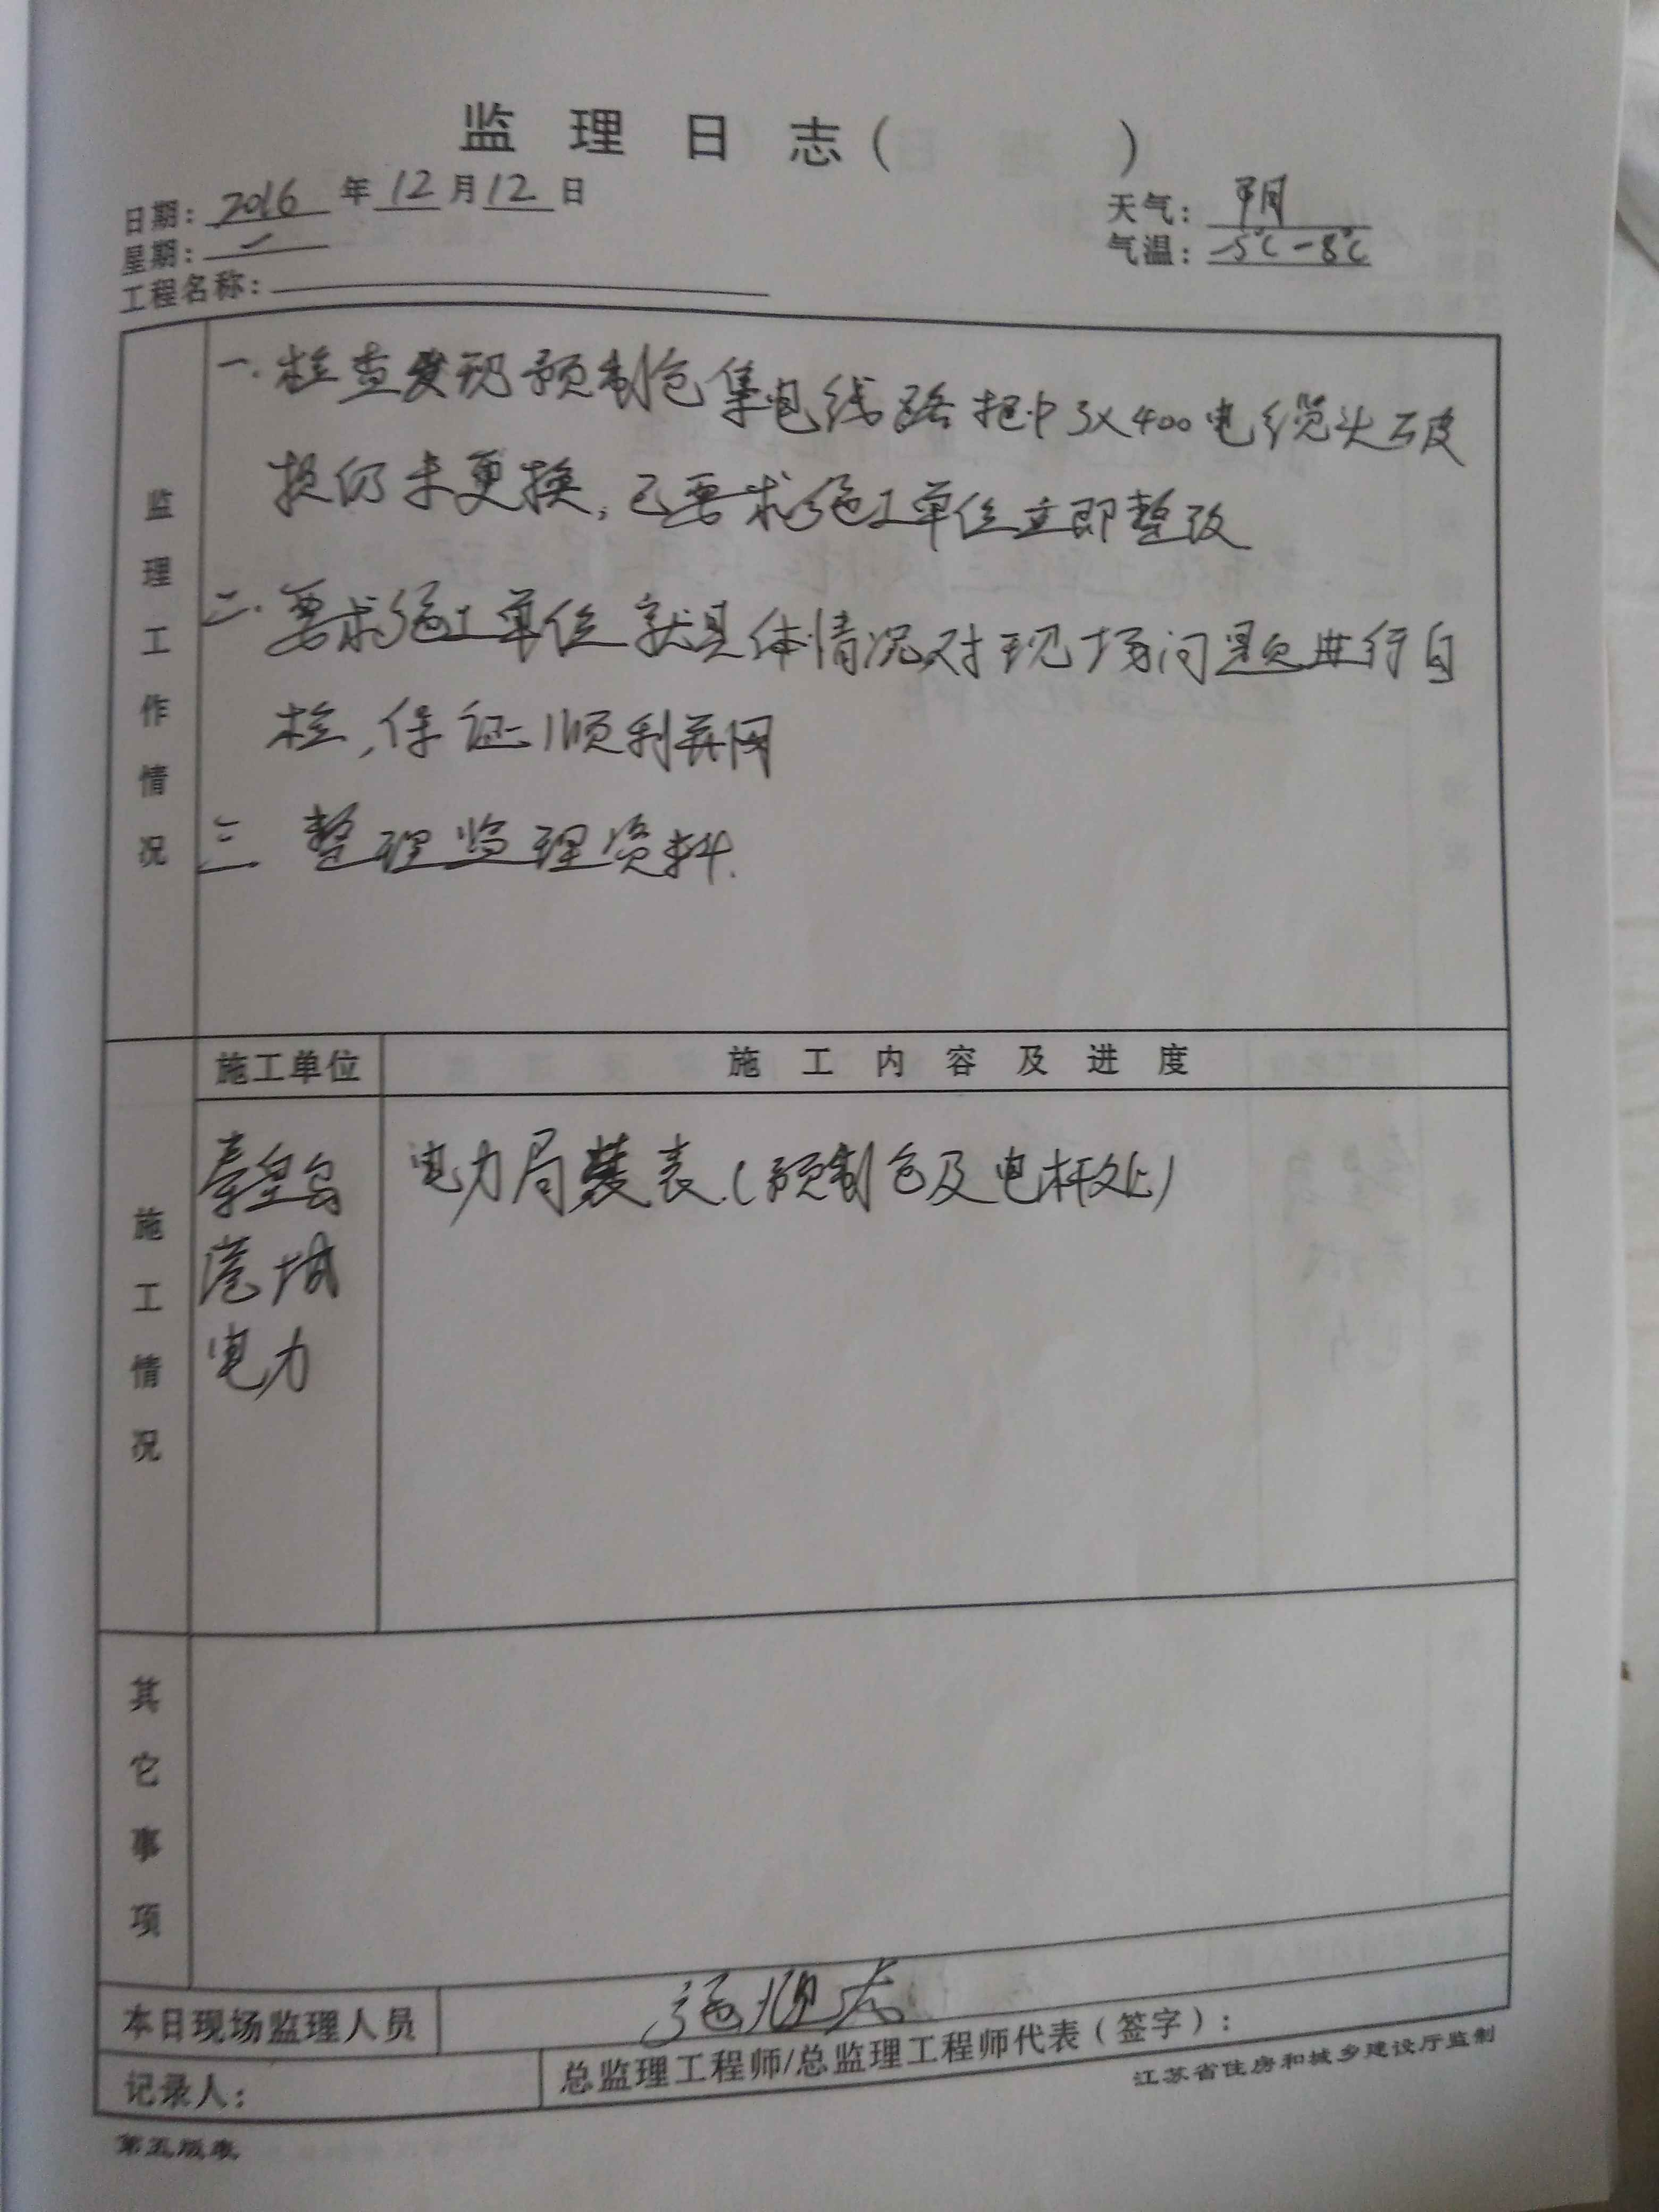 监理日志（ ）
日期：2016年12月12日
天气：阴
星期：一
气温：-5℃-8℃
工程名称：
监理工作情况
一.检查发现预制仓集电线路柜中3×400电缆头破
损仍未更换，已要求施工单位立即整改
二.要求施工单位就具体情况对现场问题进行自
检，保证顺利并网
三 整理监理资料.
施工单位
施工内容及进度
施工情况
秦皇岛
港城
电力
电力局装表.(预制仓及电杆处)
其它事项
本日现场监理人员
记录人：
总监理工程师/总监理工程师代表（签字）：
江苏省住房和城乡建设厅监制
第五版表